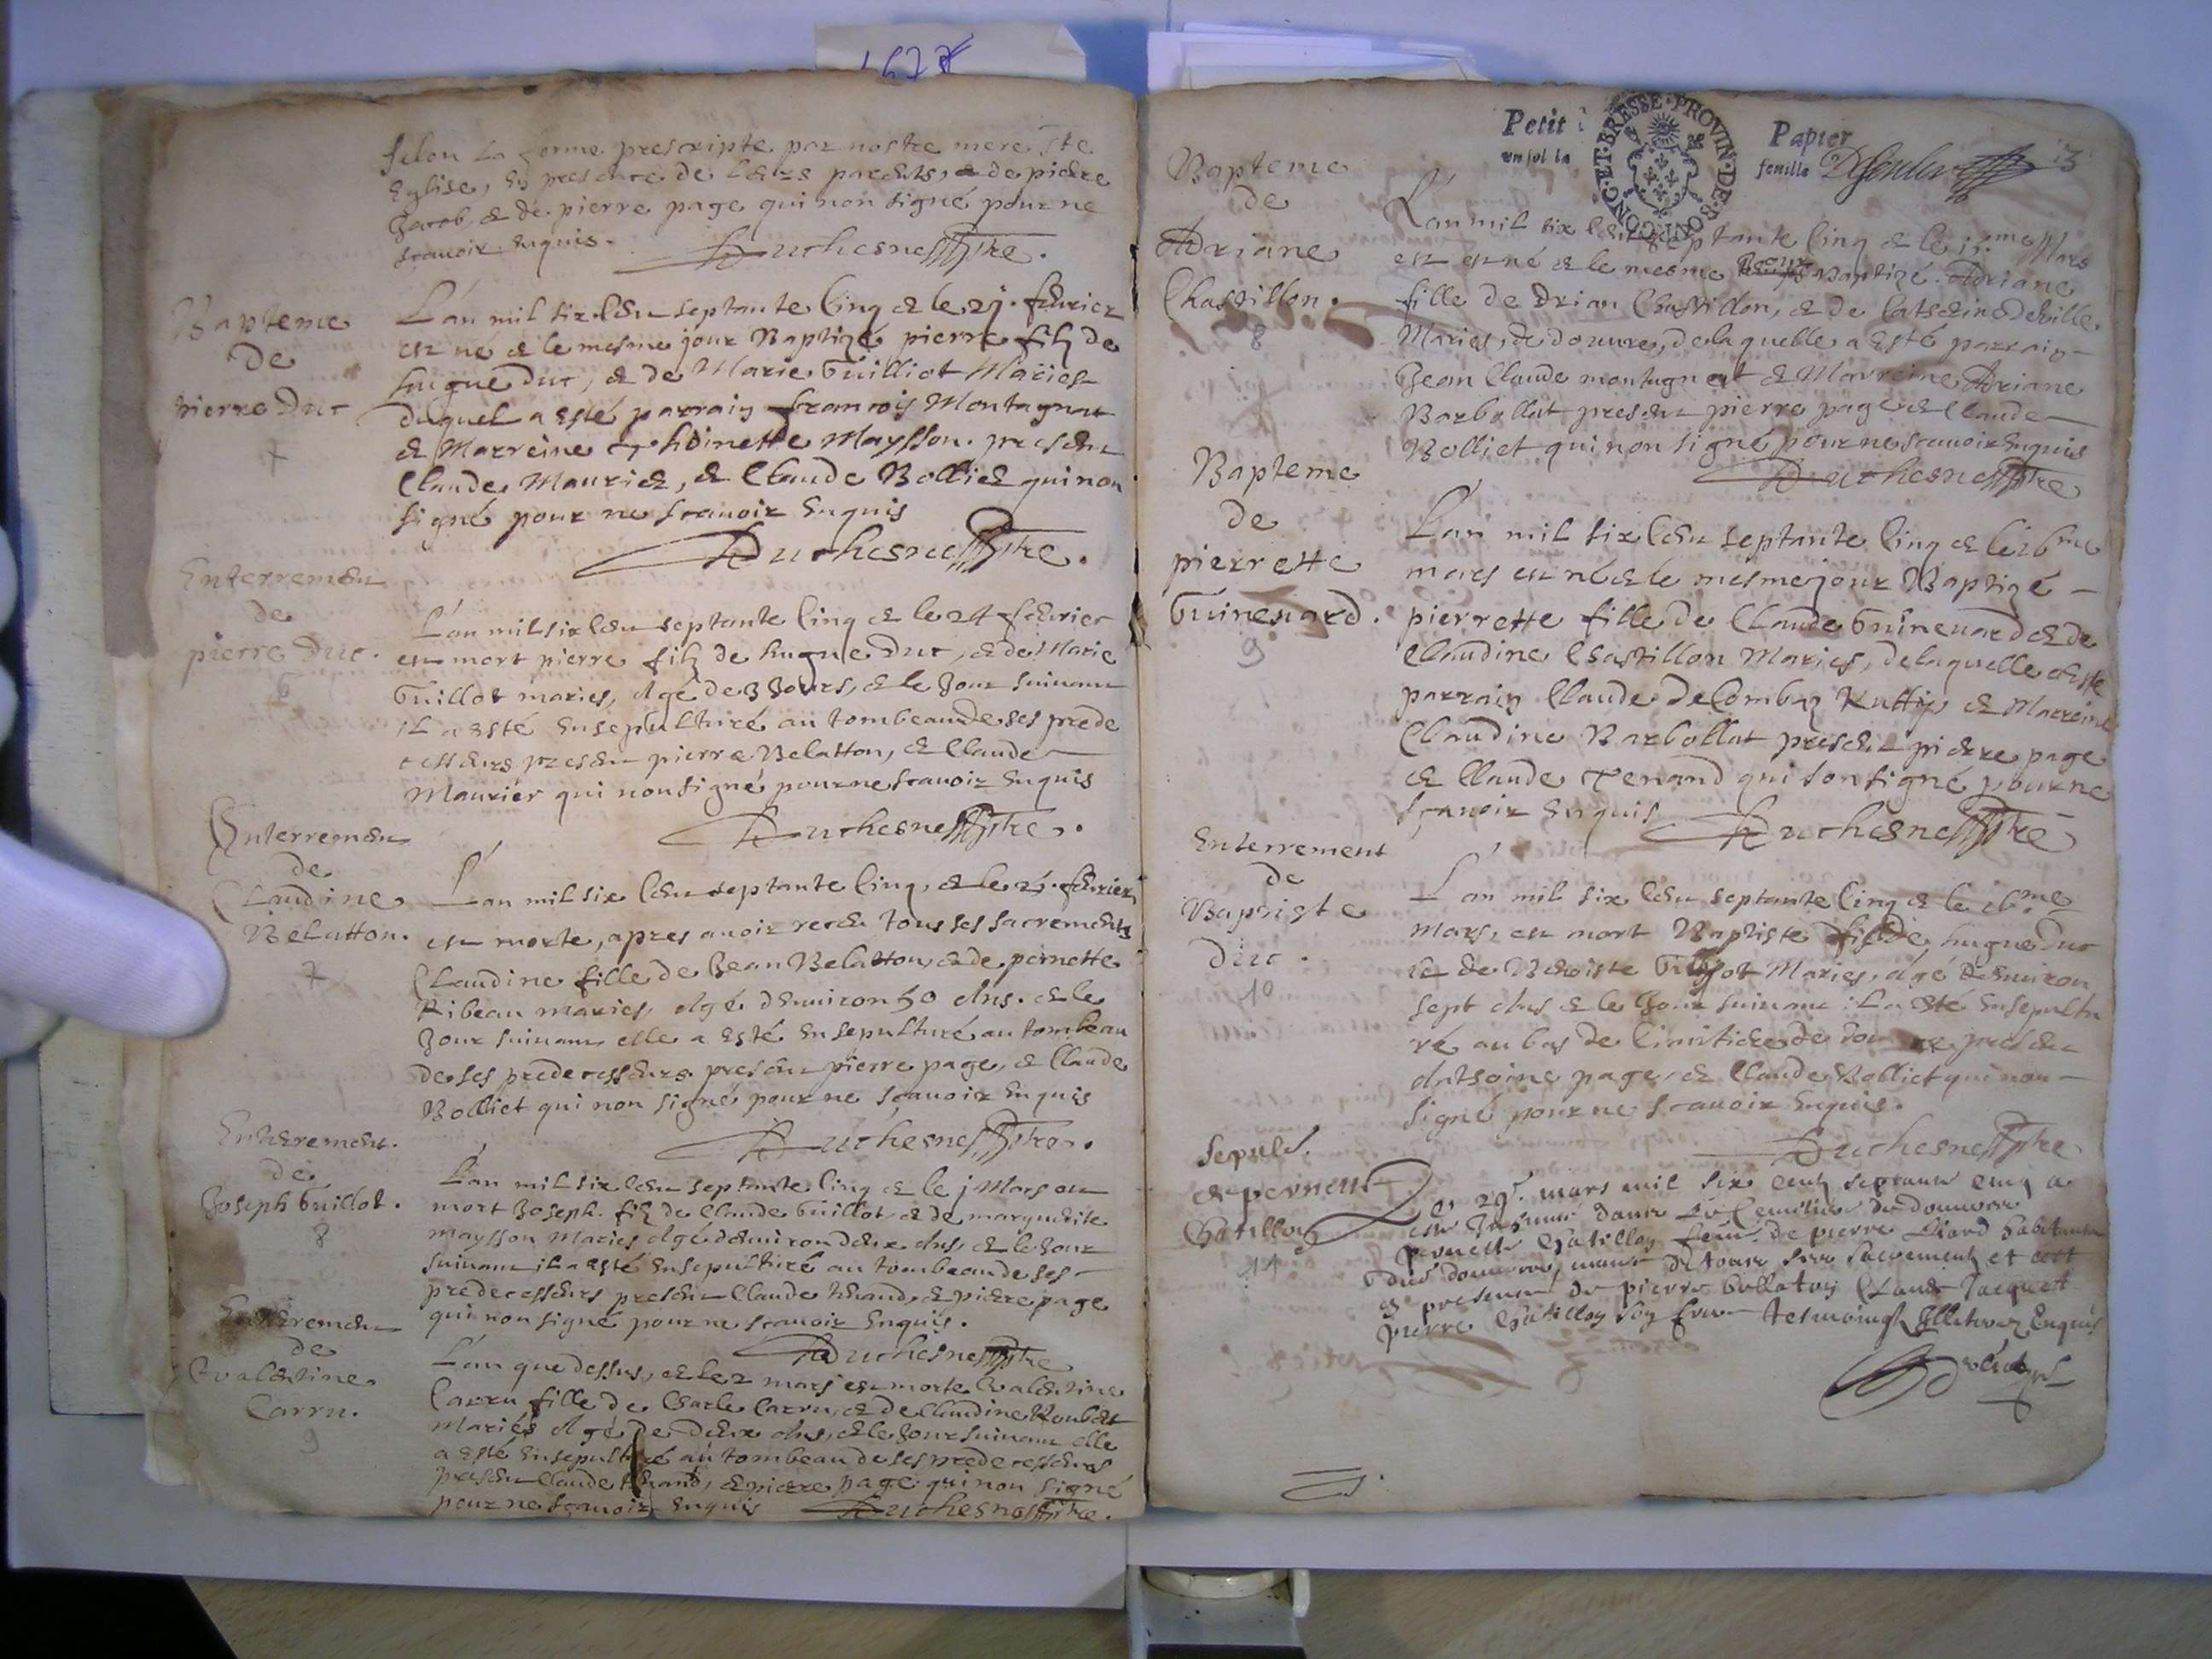 167
selon la forme prescripte par nostre mere ste
Eglise, En presence de leurs parents, & de pierre
Jacob, & de pierre page qui non signé pour ne
scauoir Enquis. Duchesne ptre.
Bapteme
de
pierre Duc
7
L'an mil six Cent septante Cinq & le 21. feurier
est né & le mesme jour Baptizé pierre filz de
hugue Duc, & de Marie Guilliot Mariez
duquel a esté parrain francois Montagnat
& Marreine Thoinette Maysson. present
Claude Maurier, & Claude Bolliet qui non
signé pour ne scauoir Enquis
Duchesne ptre.
Enterrement
de
pierre Duc.
6
L'an mil six Cent septante Cinq & le 24 feurier
est mort pierre filz de hugue Duc, & de Marie
Guillot maries, Agé de 3 Jours, & le Jour suiuant
il a esté Ensepulturé au tombeau de ses prede
cesseurs present pierre Belatton, & Claude
Maurier qui non signé pour ne scauoir Enquis
Duchesne ptre.
Enterrement
de
Claudine
Belatton.
7
L'an mil six Cent septante Cinq, & le 25. feurier
est morte, apres auoir receu tous ses sacrements
Claudine fille de Jean Belatton, & de pernette
Ribeau maries, Agé d'Enuiron 50 Ans. & le
Jour suiuant elle a esté Ensepulturé au tombeau
de ses predecesseurs present pierre page, & Claude
Bolliet qui non signé pour ne scauoir Enquis
Duchesne ptre.
Enterrement.
de
Joseph Guillot.
8
L'an mil six Cent septante Cinq & le j Mars est
mort Joseph filz de Claude Guillot, & de marguerite
maysson Maries Agé d'enuiron deux Ans, & le Jour
suiuant il a esté Ensepulturé au tombeau de ses
predecesseurs present Claude thenand, & pierre page
qui non signé pour ne scauoir Enquis.
Duchesne ptre
Enterrement
de
Valentine
Carru.
9
L'an que dessus, & le 2 mars est morte Valentine
Carru fille de Charle Carru, & de Claudine
Mariés Agé de Deux Ans, & le Jour suiuant elle
a esté Ensepulturé au tombeau de ses predecesseurs
present Claude thenand, & pierre page qui non signé
pour ne scauoir Enquis Duchesne ptre.
Petit Papier
feuille
ET BRESSE PROVIN DE BOVRGONG
3
Bapteme
de
Adriane
Chastillon.
8
L'an mil six Cent septante Cinq & le 15.me Mars
est né & le mesme Jour Baptizé. Adriane
fille de Drian Chastillon, & de Catherine deville
Maries, de douure, de laquelle a Esté parrain
Jean Claude montagnat & Marreine Adriane
Barbollat present pierre page & Claude
Bolliet qui non signé pour ne scauoir Enquis
Duchesne ptre
Bapteme
de
pierrette
Guineuard.
9
L'an mil six Cent septante Cinq & le 16me
mars est né & le mesme jour Baptizé
pierrette fille de Claude Guineuard & de
Claudine Chastillon Maries, de laquelle a Esté
parrain Claude de Combaz & Marreine
Claudine Barbollat present pierre page
& Claude Tenand qui non signé pour ne
scauoir Enquis Duchesne ptre
Enterrement
de
Baptiste
Duc.
10
L'an mil six Cent septante Cinq & le 16me
Mars, est mort Baptiste fils de hugue Duc
& de Benoiste Maries, Agé d'Enuiron
sept Ans & le Jour suiuant il a Esté Ensepultu
ré au bas de Cimitiere de present
Anthoine page, & Claude Bolliet qui non
signé pour ne scauoir Enquis.
Duchesne ptre
Sepult.
de pernette
Chatillon
11
Le 29e mars mil six cent septante cinq a
esté Inhumée dans le Cemitiere de douuure
pernette Chatillon femme de pierre habitant
dud douuure, munie de tous ses sacrements et cett
En presence de pierre Bellaton Claude Jacquet
pierre Chatillon son frere tesmoings Illiteres Enquis